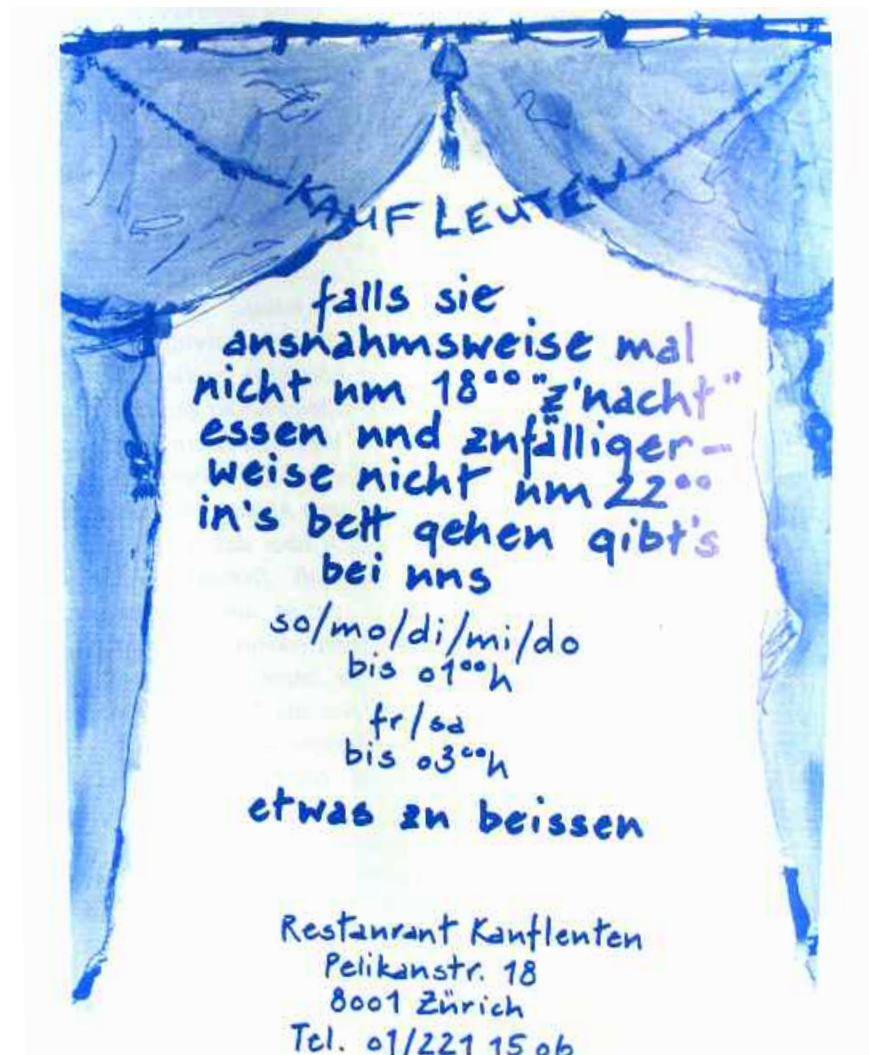 KAUFLEUTEN
falls sie
ausnahmsweise mal
nicht um 18°° "z'nacht"
essen und zufälliger-
weise nicht um 22°°
in's bett gehen gibt's
bei uns
so/mo/di/mi/do
bis 01°°h
fr/sa
bis 03°°h
etwas zu beissen
Restaurant Kaufleuten
Pelikanstr. 18
8001 Zürich
Tel. 01/221 15 06